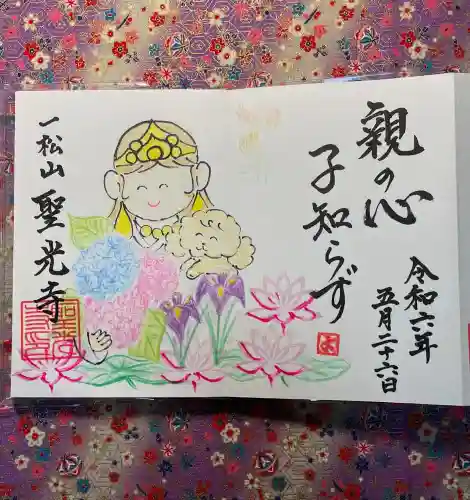 親の心
子知らず
令和六年
五月二十六日
一松山 聖光寺